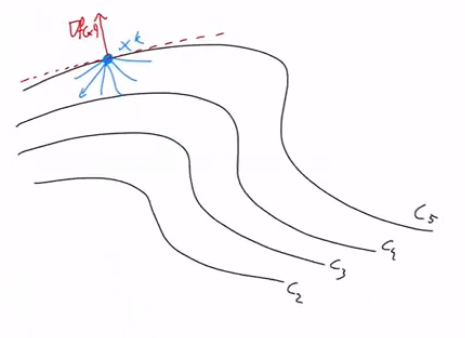 ∇f(x^k)
x^k
C5
C4
C3
C2